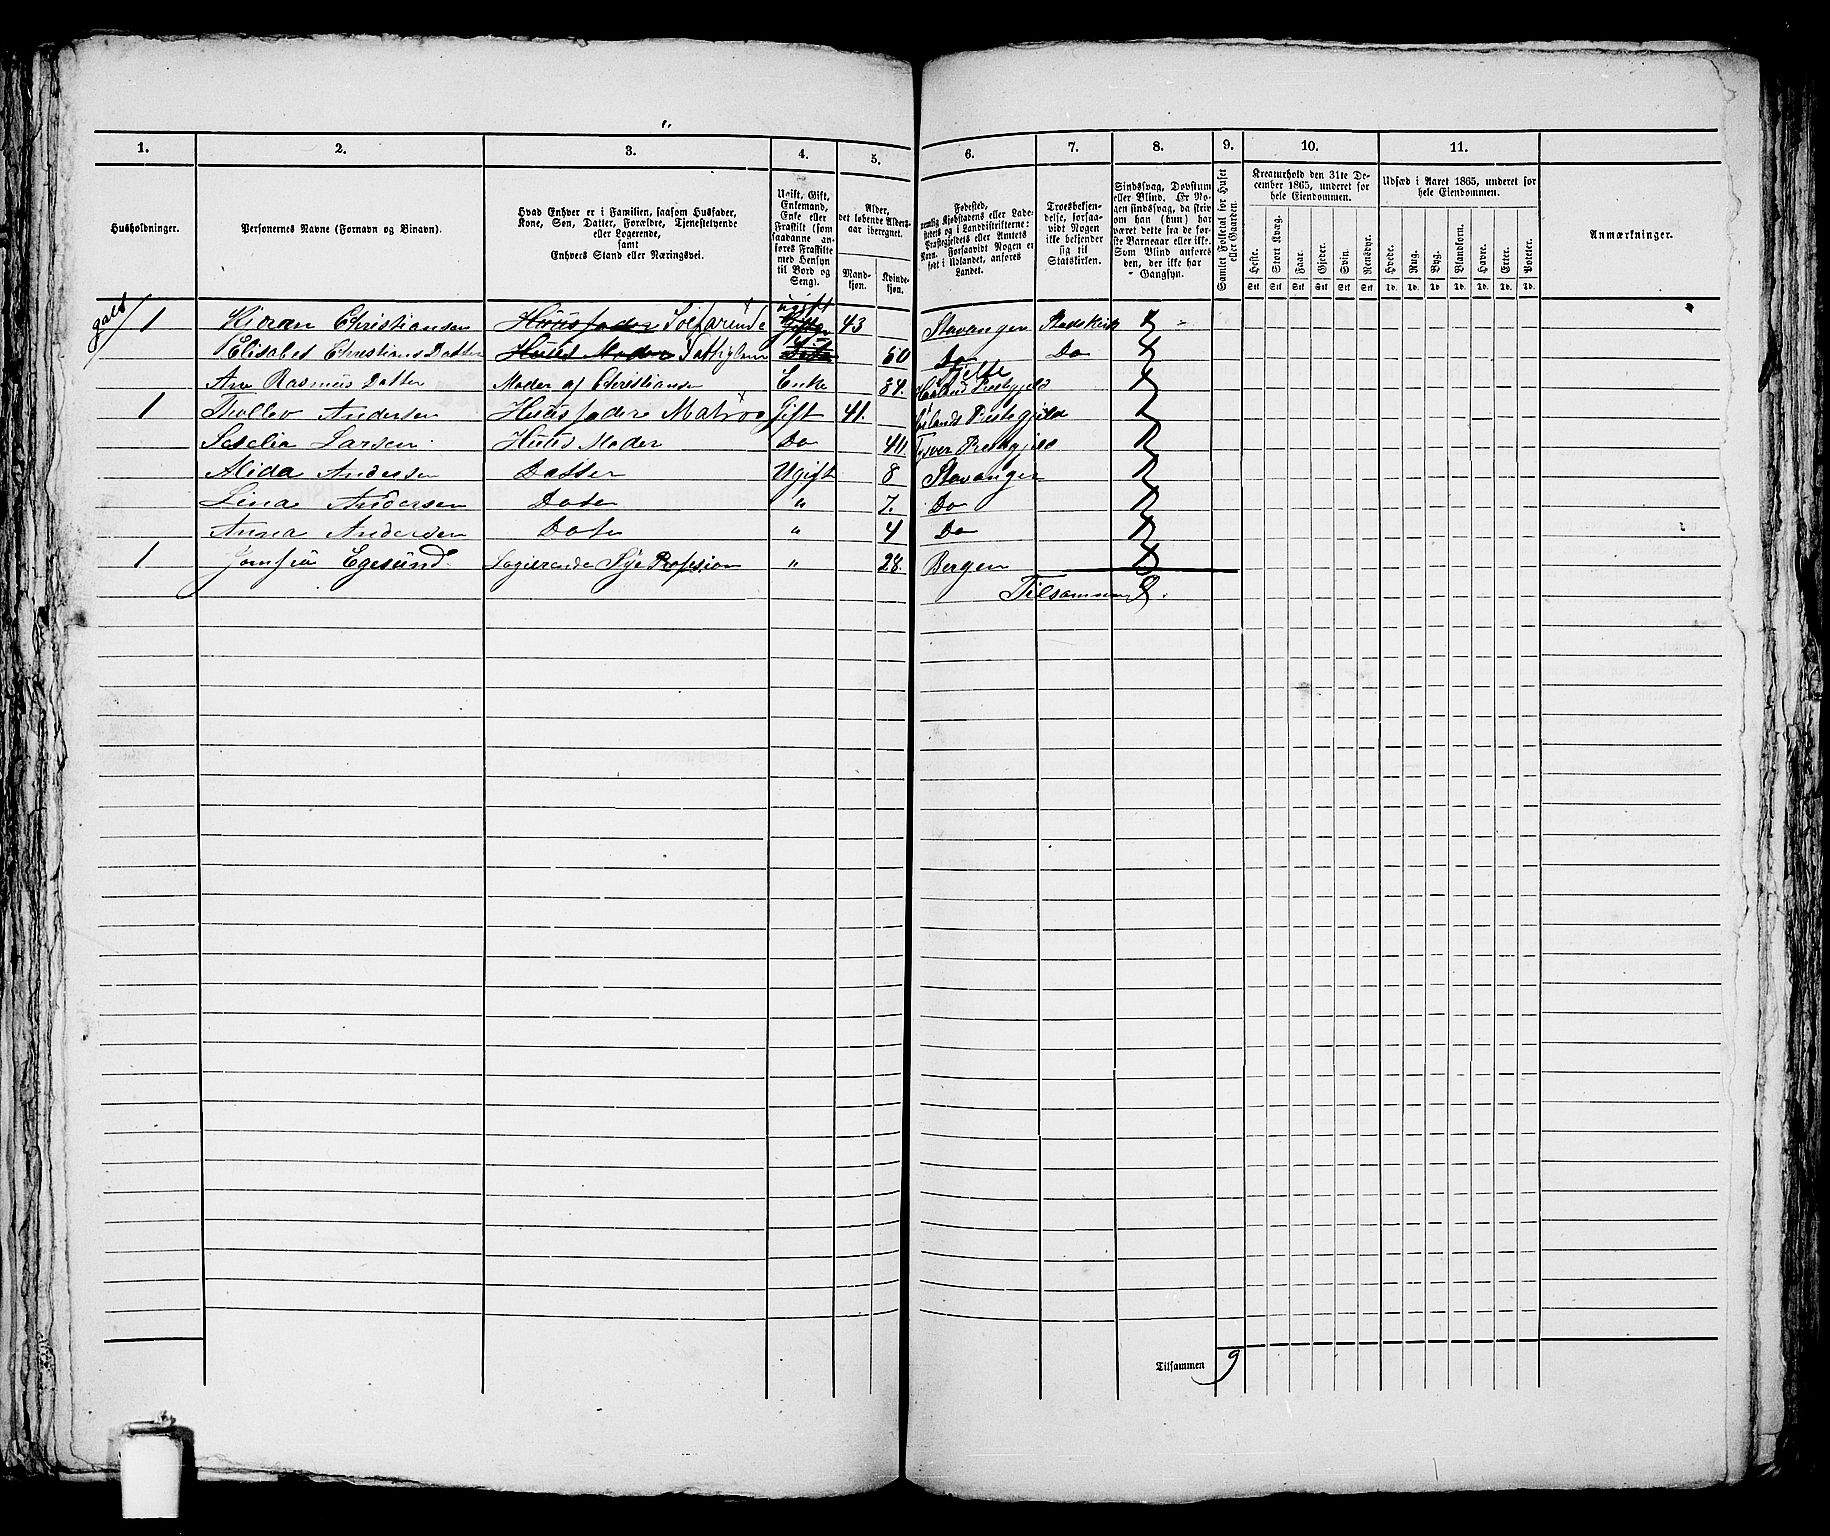 1. 2. 3. 4. 5. 6. 7. 8. 9. 10. 11.
Husholdninger.
Personernes Navne (Fornavn og Binavn).
Hvad Enhver er i Familien, saasom Husfader,
Kone, Søn, Datter, Forældre, Tjenestetyende
eller Logerende,
samt
Enhvers Stand eller Næringsvei.
Ugift, Gift,
Enkemand,
Enke eller
Fraskilt (som
saadanne an-
føres Fraskilte
med Hensyn
til Bord og
Seng).
Alder,
det løbende Alders-
aar iberegnet.
Mand-
kjøn.
Kvinde-
kjøn.
Fødested,
nemlig Kjøbstadens eller Lade-
stedets og i Landdistrikterne:
Præstegjeldets eller Amtets
Navn. Forsaavidt Nogen er
født i Udlandet, anføres
Landet.
Troesbekjen-
delse, forsaa-
vidt Nogen
ikke bekjender
sig til
Statskirken.
Sindssvag, Døvstum
eller Blind. Er No-
gen sindssvag, da skriv
om han (hun) har
været dette fra de før-
ste Barneaar eller ikke.
Som Blind anføres
den, der ikke har
Gangsyn.
Samlet Folketal for Huset
eller Gaarden.
Kreaturhold den 31te De-
cember 1865, underet for
hele Eiendommen.
Heste. Stort Kvæg. Faar. Gjeder. Svin. Rensdyr.
Stk Stk Stk Stk Stk Stk
Udsæd i Aaret 1865, underet for
hele Eiendommen.
Hvede. Rug. Byg. Blandkorn. Havre. Erter. Poteter.
Td. Td. Td. Td. Td. Td. Td.
Anmærkninger.
ugift
1 Christiansen Huusfader Søefarende 43 Stavanger
Elisabet Christians Datter Huus Moder 50 Do Do
Rasmus Datter Moder af Christiansen Enke 84.
1 Tollev Andersen Huusfader Matros Gift 41.
Larsen Huus Moder Do 40
Alida Andersen Datter Ugift 8 Stavanger
Lina Andersen Dote " 7. Do
Anna Andersen Dote " 4 Do
1 Jomfru Egesund Logierende Sye Profesion " 28. Bergen
Tilsammen 9.
Tilsammen 9